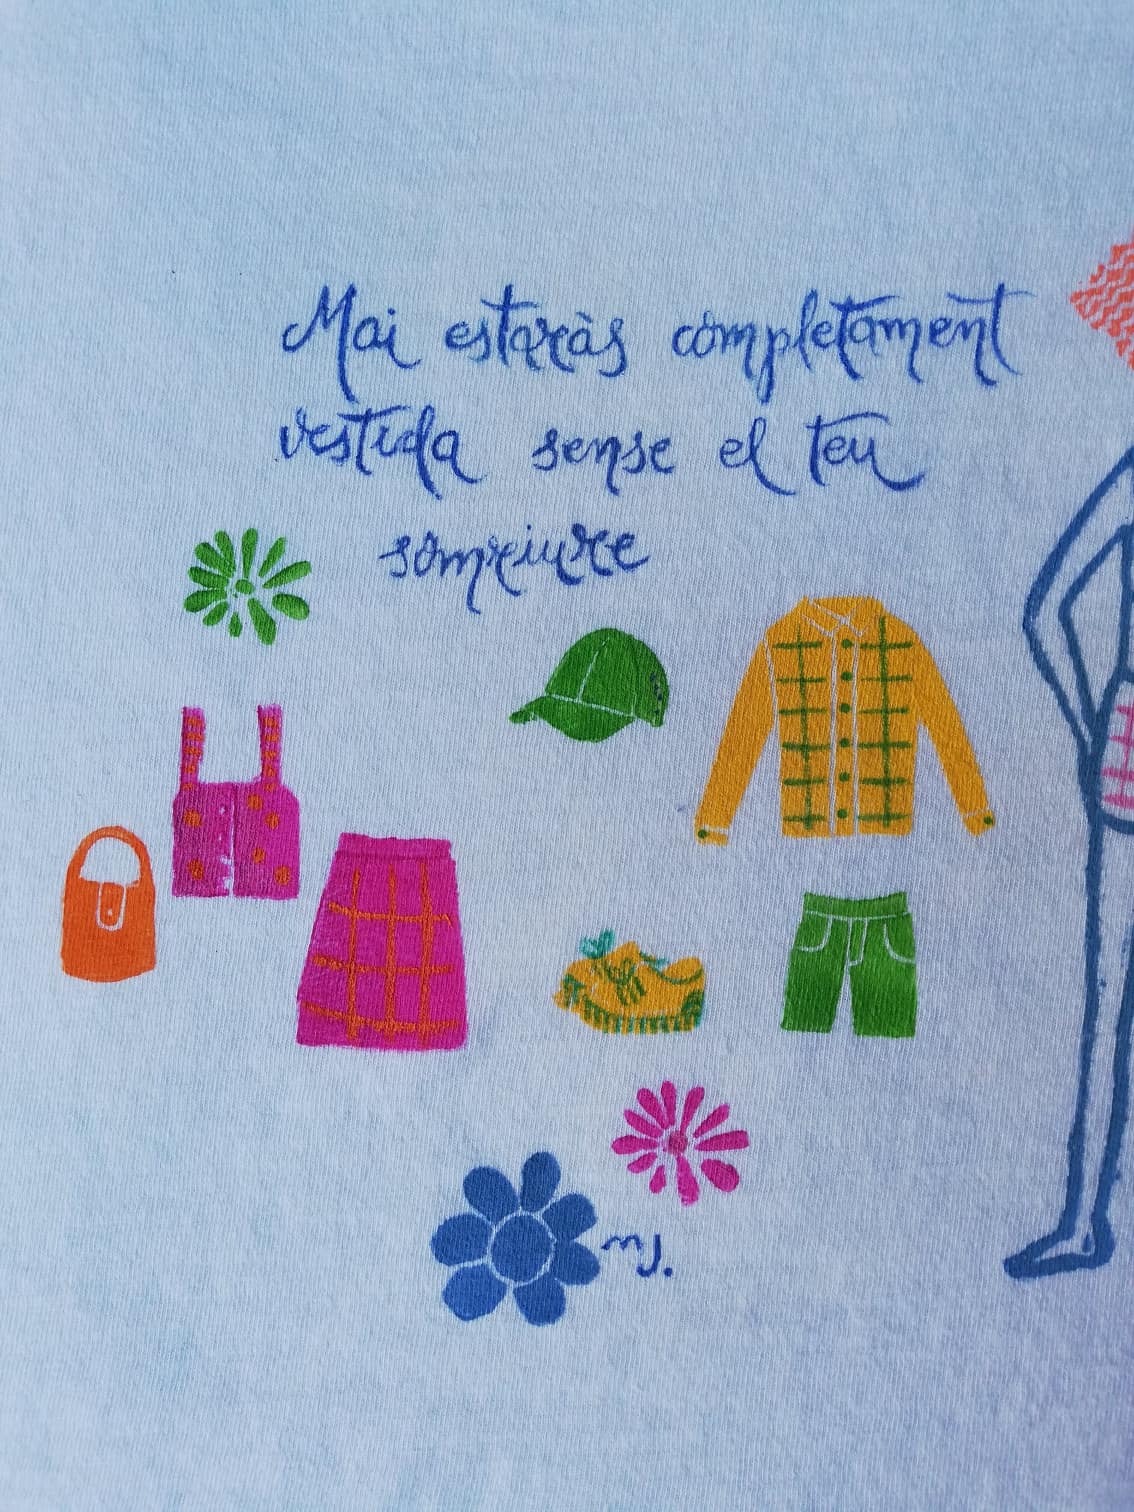 Mai estaràs completament
vestida sense el teu
somriure
mJ.